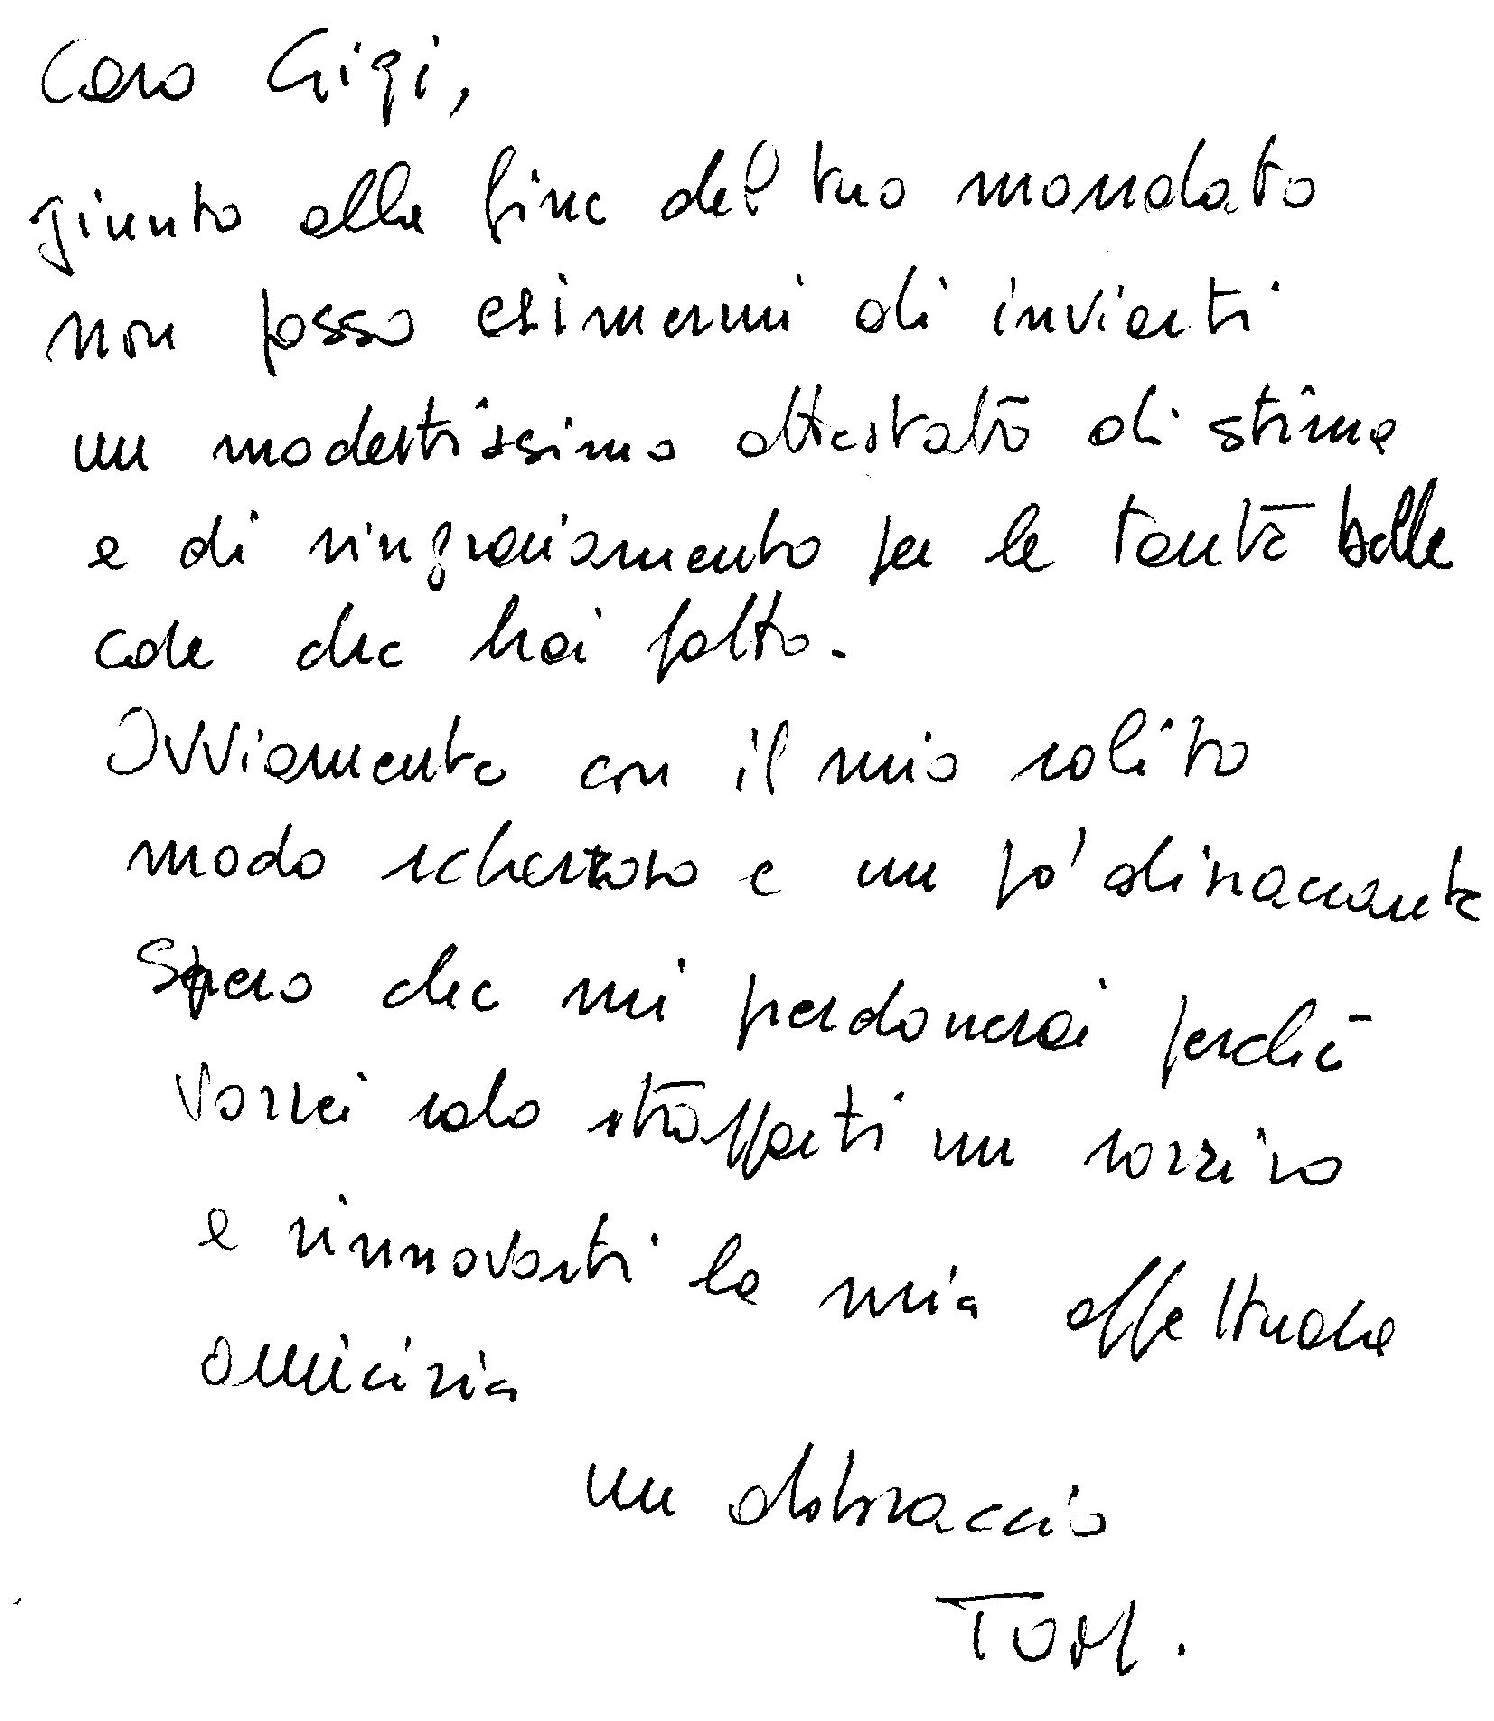 Caro Gigi,
giunto alla fine del tuo mandato
non posso esimermi di inviarti
un modestissimo attestato di stima
e di ringraziamento per le tante belle
cose che hai fatto.
Ovviamente con il mio solito
modo scherzoso e un po' dissacrante
Spero che mi perdonerai perché
vorrei solo strapparti un sorriso
e rinnovarti la mia affettuosa
amicizia
un abbraccio
TOM.